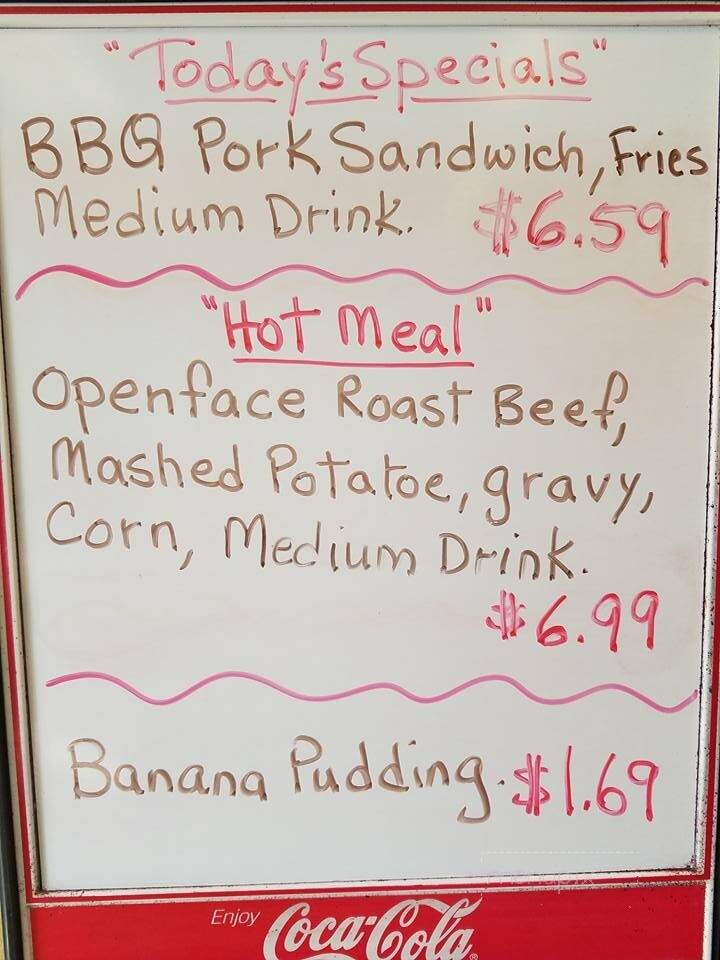 "Today's Specials"
BBQ Pork Sandwich, Fries
Medium Drink. $6.59
"Hot Meal"
Openface Roast Beef,
Mashed Potatoe, gravy,
Corn, Medium Drink.
$6.99
Banana Pudding. $1.69
Enjoy Coca-Cola®